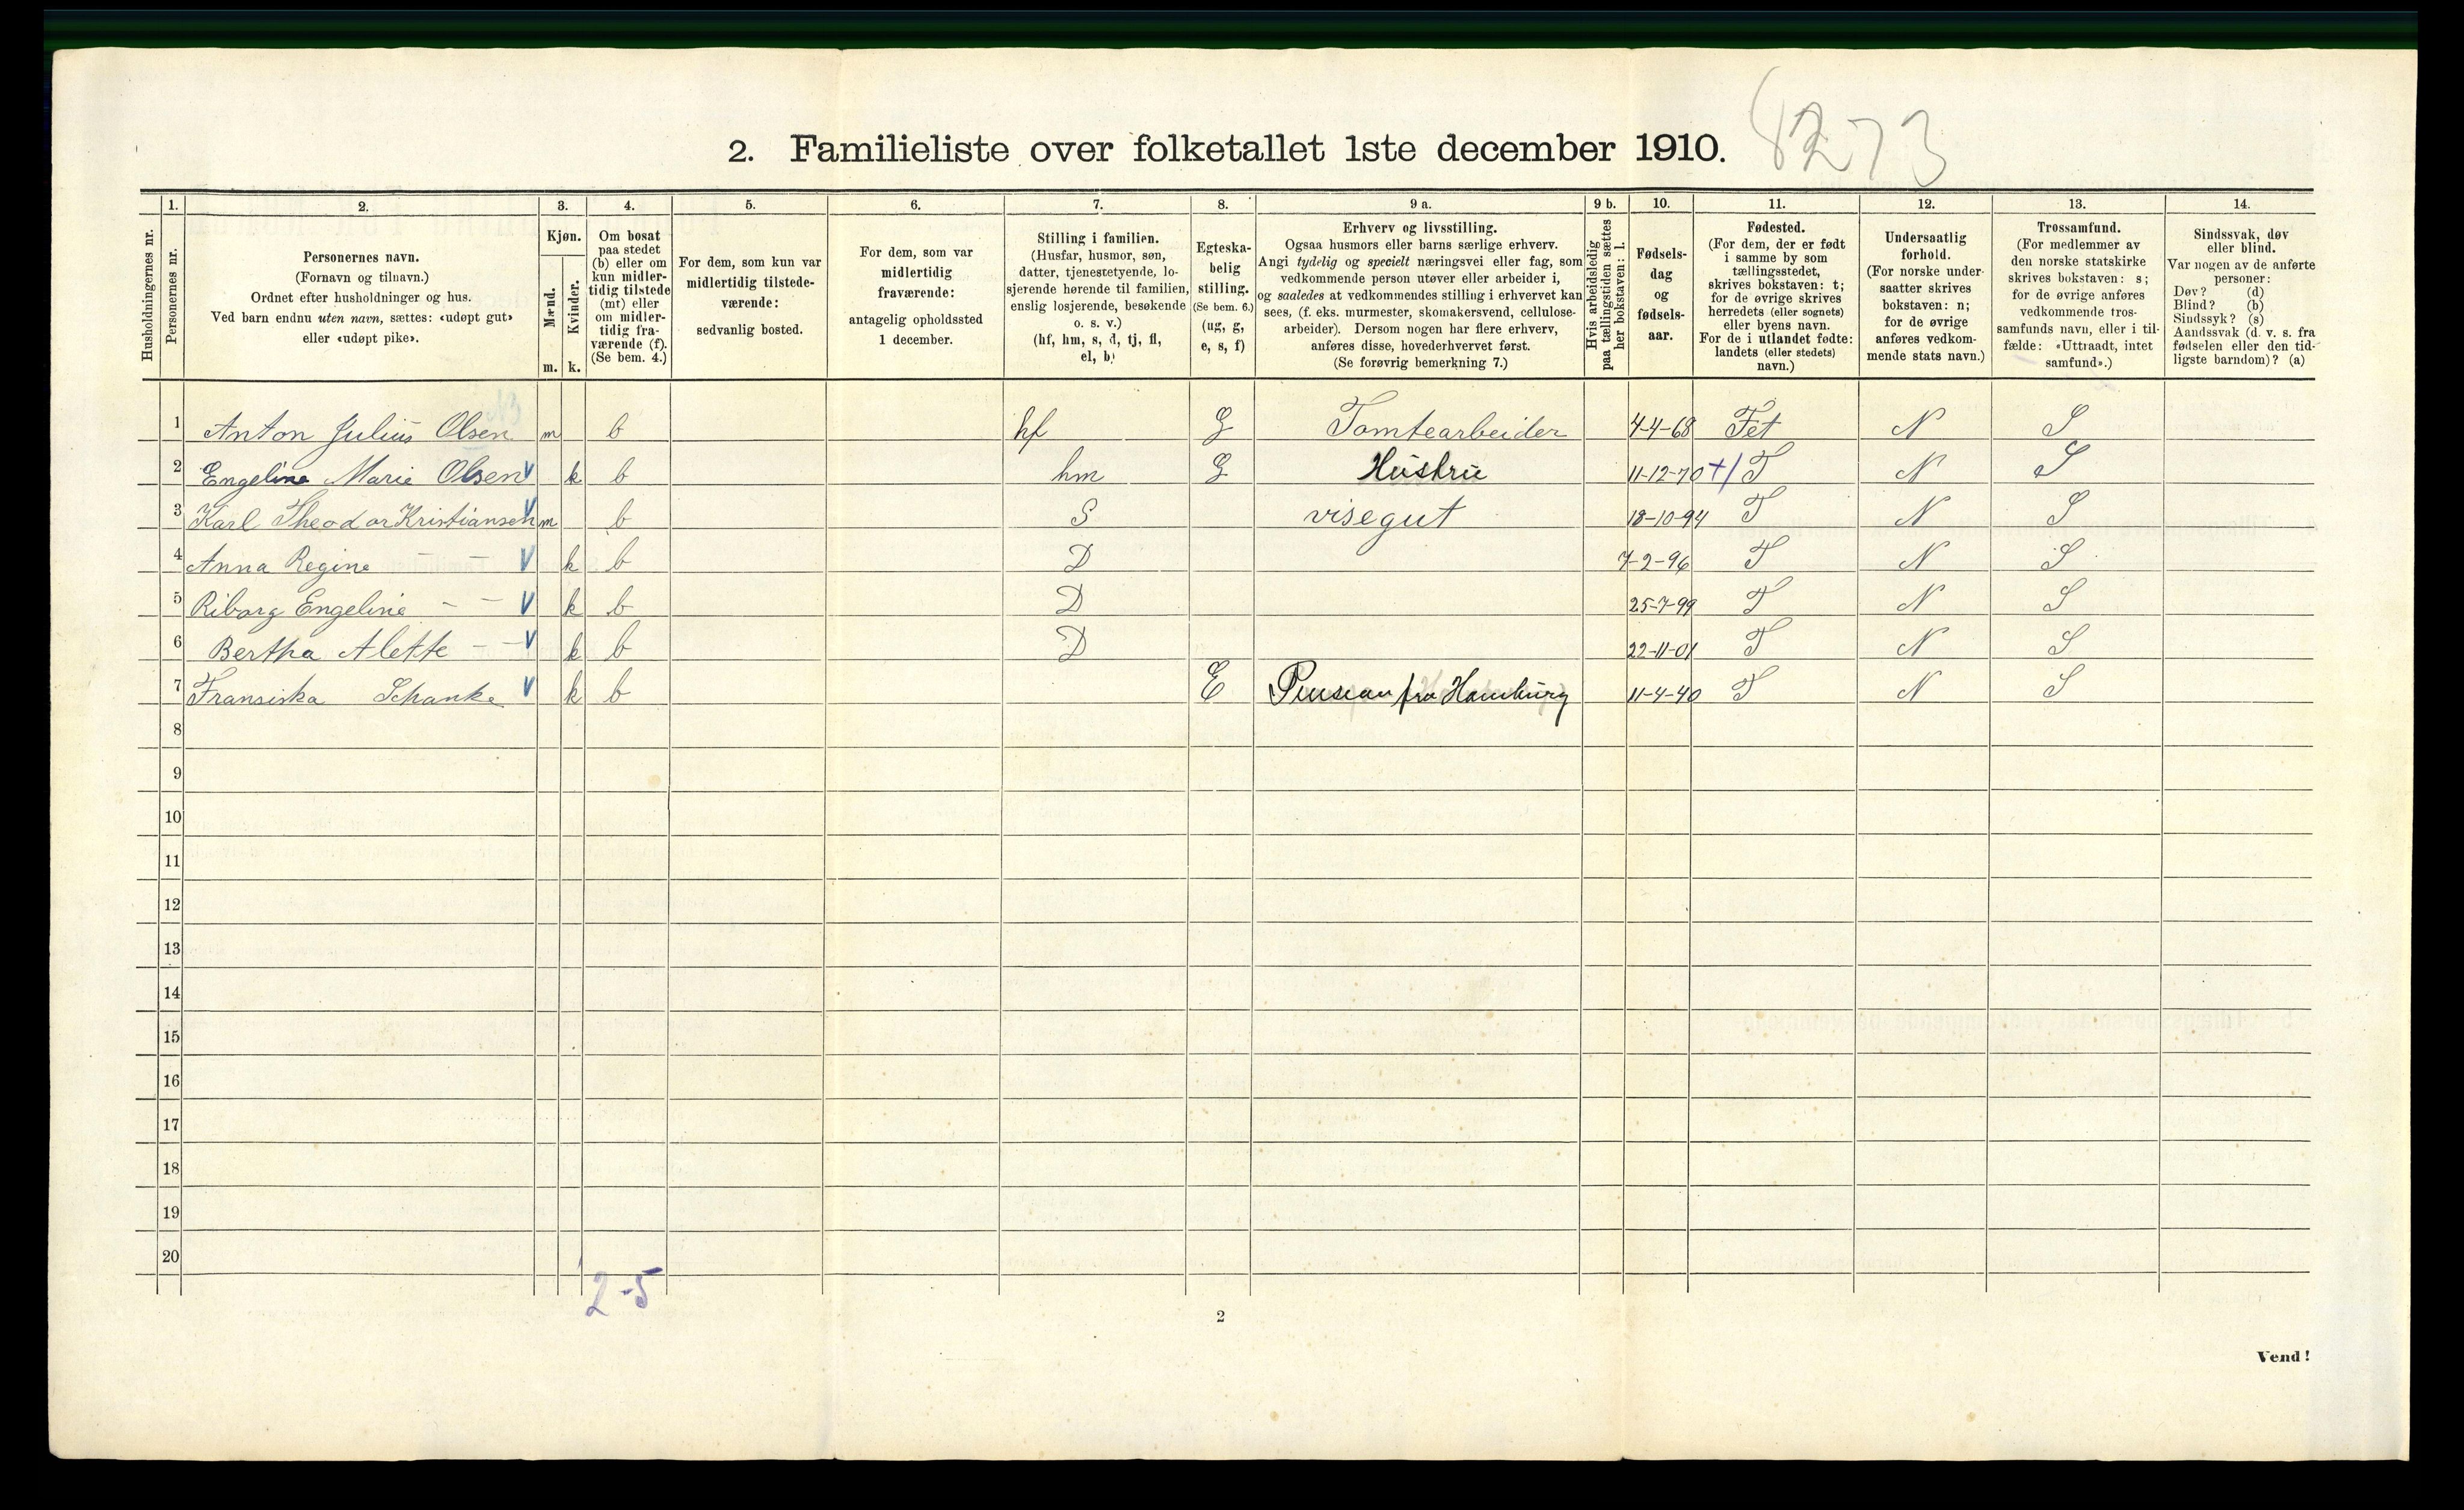 2. Familieliste over folketallet 1ste december 1910.
8273
Husholdningernes nr.
1.
Personernes nr.
2.
Personernes navn.
(Fornavn og tilnavn.)
Ordnet efter husholdninger og hus.
Ved barn endnu uten navn, sættes: «udøpt gut»
eller «udøpt pike».
3.
Kjøn.
Mænd.
Kvinder.
m. k.
4.
Om bosat
paa stedet
(b) eller om
kun midler-
tidig tilstede
(mt) eller
om midler-
tidig fra-
værende (f).
(Se bem. 4.)
5.
For dem, som kun var
midlertidig tilstede-
værende:
sedvanlig bosted.
6.
For dem, som var
midlertidig
fraværende:
antagelig opholdssted
1 december.
7.
Stilling i familien.
(Husfar, husmor, søn,
datter, tjenestetyende, lo-
sjerende hørende til familien,
enslig losjerende, besøkende
o. s. v.)
(hf, hm, s, d, tj, fl,
el, b)
8.
Egteska-
belig
stilling.
(Se bem. 6.)
(ug, g,
e, s, f)
9 a.
Erhverv og livsstilling.
Ogsaa husmors eller barns særlige erhverv.
Angi tydelig og specielt næringsvei eller fag, som
vedkommende person utøver eller arbeider i,
og saaledes at vedkommendes stilling i erhvervet kan
sees, (f. eks. murmester, skomakersvend, cellulose-
arbeider). Dersom nogen har flere erhverv,
anføres disse, hovederhvervet først.
(Se forøvrig bemerkning 7.)
9 b.
Hvis arbeidsledig
paa tællingstiden sættes
her bokstaven: l.
10.
Fødsels-
dag
og
fødsels-
aar.
11.
Fødested.
(For dem, der er født
i samme by som
tællingsstedet,
skrives bokstaven: t;
for de øvrige skrives
herredets (eller sognets)
eller byens navn.
For de i utlandet fødte:
landets (eller stedets)
navn.)
12.
Undersaatlig
forhold.
(For norske under-
saatter skrives
bokstaven: n;
for de øvrige
anføres vedkom-
mende stats navn.)
13.
Trossamfund.
(For medlemmer av
den norske statskirke
skrives bokstaven: s;
for de øvrige anføres
vedkommende tros-
samfunds navn, eller i til-
fælde: «Uttraadt, intet
samfund».)
14.
Sindssvak, døv
eller blind.
Var nogen av de anførte
personer:
Døv? (d)
Blind? (b)
Sindssyk? (s)
Aandssvak (d. v. s. fra
fødselen eller den tid-
ligste barndom)? (a)
1 Anton Julius Olsen m b hf G Tomtearbeider 4-4-68 Fet N S
2 Engeline Marie Olsen V k b hm G Hustru 11-12-70 +/ T N S
3 Karl Theodor Kristiansen V m b S visegut 18-10-94 T N S
4 Anna Regine — — V k b D 7-2-96 T N S
5 Riborg Engeline - — V k b D 25-7-99 T N S
6 Bertha Alette - — V k b D 22-11-01 T N S
7 Fransiska Schanke V k b E Pension fra Hamburg 11-4-40 T N S
8
9
10
11
12
13
14
15
16
17
18
19
20
2-5
2
Vend!